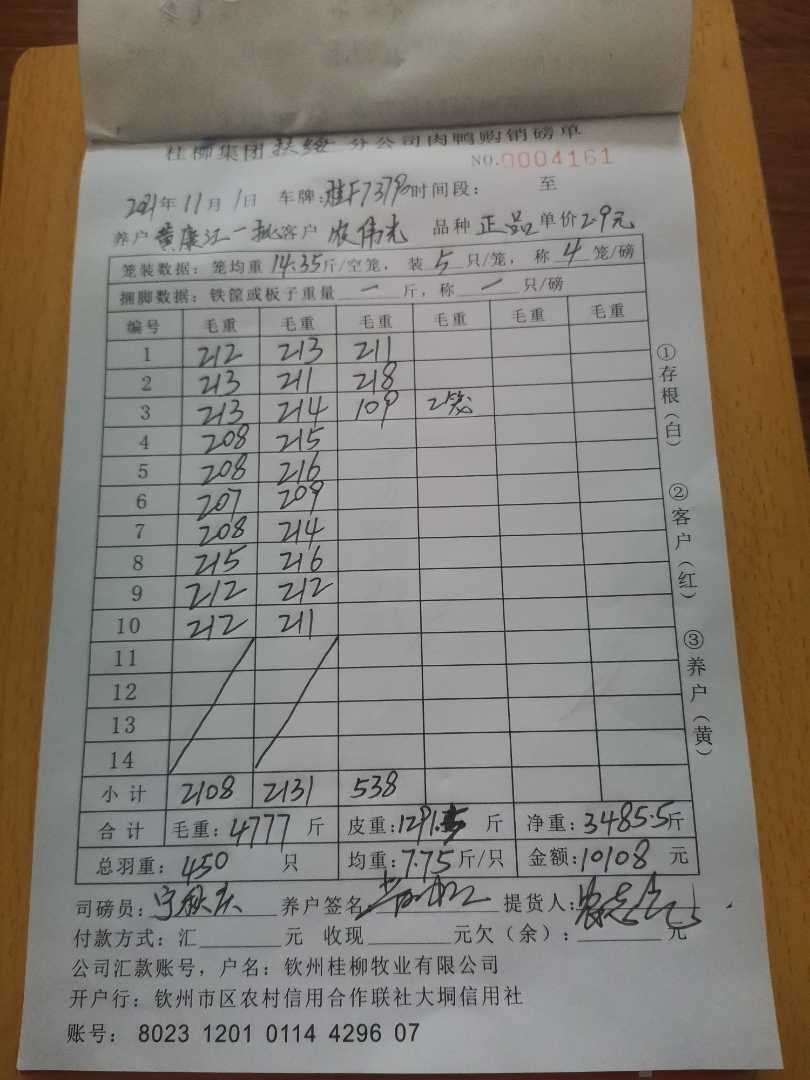 桂柳集团扶绥分公司肉鸭购销磅单
NO.0004161
2021年11月1日 车牌:桂F73790时间段: 至
养户黄康江一批客户 农伟光 品种 正品 单价2.9元
笼装数据: 笼均重14.35斤/空笼, 装5只/笼, 称4笼/磅
捆脚数据: 铁筐或板子重量 一 斤, 称 一 只/磅
编号 毛重 毛重 毛重 毛重 毛重 毛重
1 212 213 211
2 213 211 218
3 213 214 109 2笼
4 208 215
5 208 216
6 207 209
7 208 214
8 215 216
9 212 212
10 212 211
11
12
13
14
小计 2108 2131 538
合计 毛重:4777斤 皮重:1291.5斤 净重:3485.5斤
总羽重: 450 只 均重:7.75斤/只 金额:10108元
司磅员: 养户签名 提货人:
付款方式: 汇 元 收现 元欠(余): 元
公司汇款账号, 户名: 钦州桂柳牧业有限公司
开户行: 钦州市区农村信用合作联社大垌信用社
账号: 8023 1201 0114 4296 07
①存根(白) ②客户(红) ③养户(黄)